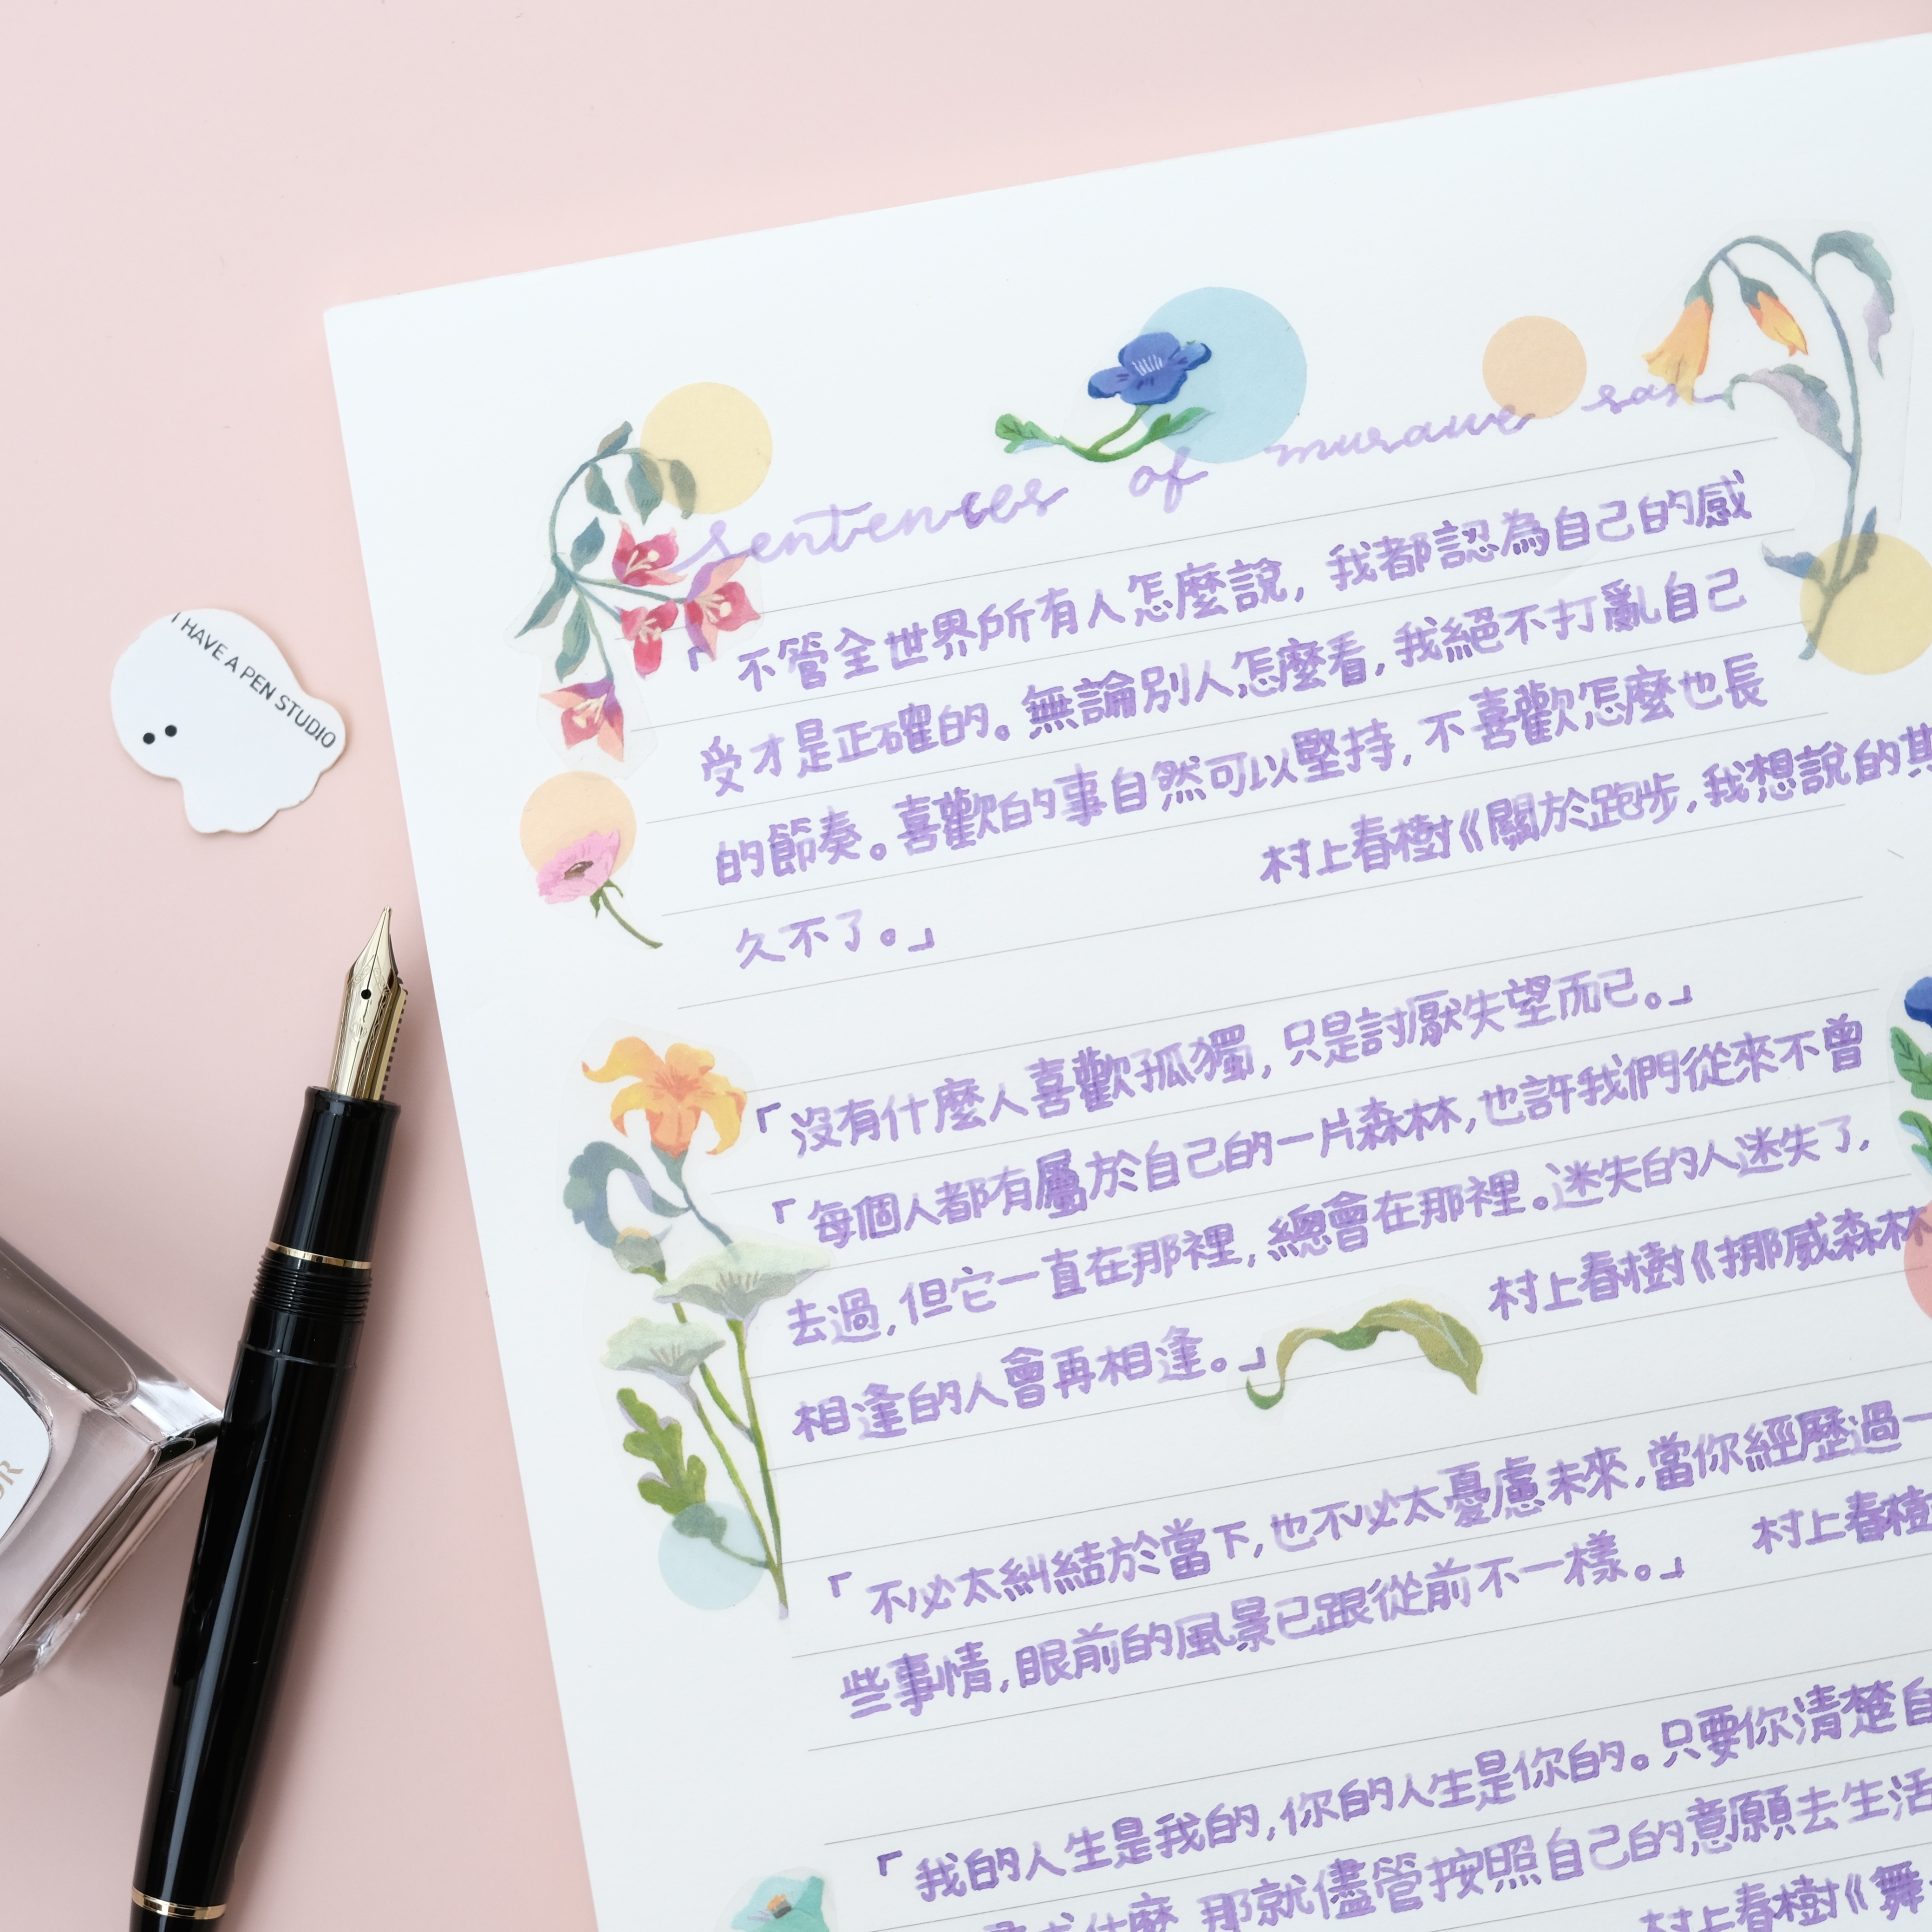 sentences of murawe san
「不管全世界所有人怎麼說,我都認為自己的感
受才是正確的。無論別人怎麼看,我絕不打亂自己
的節奏。喜歡的事自然可以堅持,不喜歡怎麼也長
久不了。」 村上春樹《關於跑步,我想說的其
「沒有什麼人喜歡孤獨,只是討厭失望而已。」
「每個人都有屬於自己的一片森林,也許我們從來不曾
去過,但它一直在那裡,總會在那裡。迷失的人迷失了,
相逢的人會再相逢。」 村上春樹《挪威森林
「不必太糾結於當下,也不必太憂慮未來,當你經歷過一
些事情,眼前的風景已跟從前不一樣。」 村上春樹
「我的人生是我的,你的人生是你的。只要你清楚自
什麼,那就儘管按照自己的意願去生活
村上春樹《舞
I HAVE A PEN STUDIO
OR